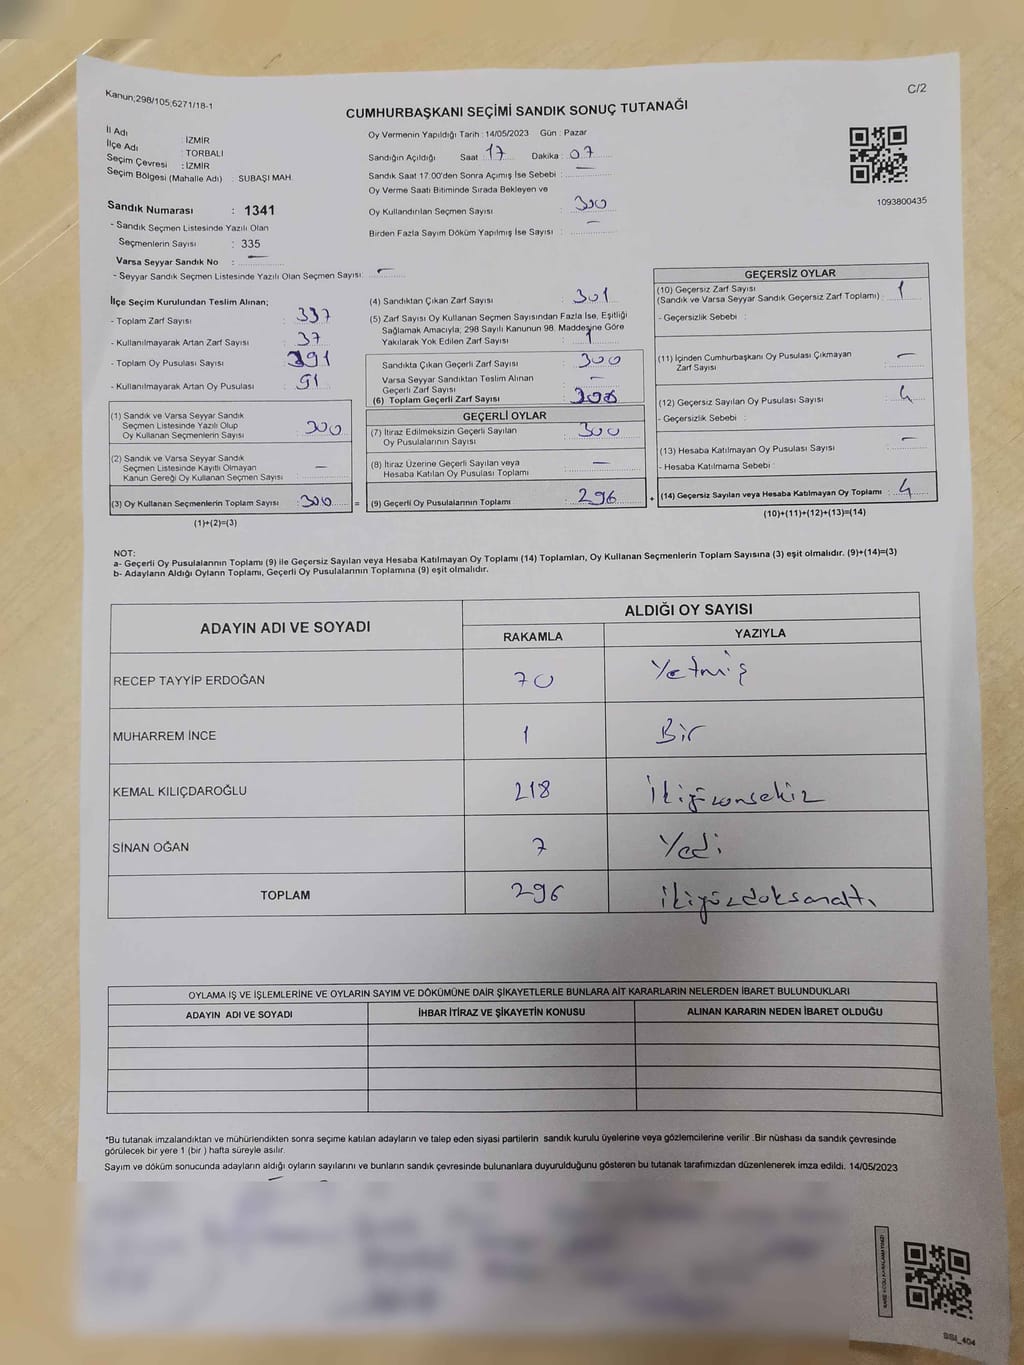 Kanun;298/105;6271/18-1
C/2
CUMHURBAŞKANI SEÇİMİ SANDIK SONUÇ TUTANAĞI
İl Adı : İZMİR
İlçe Adı : TORBALI
Seçim Çevresi : İZMİR
Seçim Bölgesi (Mahalle Adı) : SUBAŞI MAH.
Sandık Numarası : 1341
- Sandık Seçmen Listesinde Yazılı Olan
Seçmenlerin Sayısı : 335
Varsa Seyyar Sandık No : —
- Seyyar Sandık Seçmen Listesinde Yazılı Olan Seçmen Sayısı: —
Oy Vermenin Yapıldığı Tarih : 14/05/2023 Gün : Pazar
Sandığın Açıldığı Saat : 17 Dakika : 07
Sandık Saat 17:00'den Sonra Açımış İse Sebebi : —
Oy Verme Saati Bitiminde Sırada Bekleyen ve
Oy Kullandırılan Seçmen Sayısı : 300
Birden Fazla Sayım Döküm Yapılmış İse Sayısı : —
1093800435
İlçe Seçim Kurulundan Teslim Alınan;
- Toplam Zarf Sayısı : 337
- Kullanılmayarak Artan Zarf Sayısı : 37
- Toplam Oy Pusulası Sayısı : 391
- Kullanılmayarak Artan Oy Pusulası : 91
(1) Sandık ve Varsa Seyyar Sandık
Seçmen Listesinde Yazılı Olup
Oy Kullanan Seçmenlerin Sayısı : 300
(2) Sandık ve Varsa Seyyar Sandık
Seçmen Listesinde Kayıtlı Olmayan
Kanun Gereği Oy Kullanan Seçmen Sayısı : —
(3) Oy Kullanan Seçmenlerin Toplam Sayısı : 300 =
(1)+(2)=(3)
(4) Sandıktan Çıkan Zarf Sayısı : 301
(5) Zarf Sayısı Oy Kullanan Seçmen Sayısından Fazla İse, Eşitliği
Sağlamak Amacıyla; 298 Sayılı Kanunun 98. Maddesine Göre
Yakılarak Yok Edilen Zarf Sayısı : 1
Sandıkta Çıkan Geçerli Zarf Sayısı : 300
Varsa Seyyar Sandıktan Teslim Alınan
Geçerli Zarf Sayısı : —
(6) Toplam Geçerli Zarf Sayısı :
GEÇERLİ OYLAR
(7) İtiraz Edilmeksizin Geçerli Sayılan
Oy Pusulalarının Sayısı : 300
(8) İtiraz Üzerine Geçerli Sayılan veya
Hesaba Katılan Oy Pusulası Toplamı : —
(9) Geçerli Oy Pusulalarının Toplamı : 296 +
GEÇERSİZ OYLAR
(10) Geçersiz Zarf Sayısı
(Sandık ve Varsa Seyyar Sandık Geçersiz Zarf Toplamı) : 1
- Geçersizlik Sebebi :
(11) İçinden Cumhurbaşkanı Oy Pusulası Çıkmayan
Zarf Sayısı : —
(12) Geçersiz Sayılan Oy Pusulası Sayısı : 4
- Geçersizlik Sebebi :
(13) Hesaba Katılmayan Oy Pusulası Sayısı : —
- Hesaba Katılmama Sebebi :
(14) Geçersiz Sayılan veya Hesaba Katılmayan Oy Toplamı : 4
(10)+(11)+(12)+(13)=(14)
NOT:
a- Geçerli Oy Pusulalarının Toplamı (9) ile Geçersiz Sayılan veya Hesaba Katılmayan Oy Toplamı (14) Toplamları, Oy Kullanan Seçmenlerin Toplam Sayısına (3) eşit olmalıdır. (9)+(14)=(3)
b- Adayların Aldığı Oyların Toplamı, Geçerli Oy Pusulalarının Toplamına (9) eşit olmalıdır.
ADAYIN ADI VE SOYADI ALDIĞI OY SAYISI
RAKAMLA YAZIYLA
RECEP TAYYİP ERDOĞAN 70 Yetmiş
MUHARREM İNCE 1 Bir
KEMAL KILIÇDAROĞLU 218 İkiyüzonsekiz
SİNAN OĞAN 7 Yedi
TOPLAM 296 ikiyüzdoksanaltı
OYLAMA İŞ VE İŞLEMLERİNE VE OYLARIN SAYIM VE DÖKÜMÜNE DAİR ŞİKAYETLERLE BUNLARA AİT KARARLARIN NELERDEN İBARET BULUNDUKLARI
ADAYIN ADI VE SOYADI İHBAR İTİRAZ VE ŞİKAYETİN KONUSU ALINAN KARARIN NEDEN İBARET OLDUĞU
*Bu tutanak imzalandıktan ve mühürlendikten sonra seçime katılan adayların ve talep eden siyasi partilerin sandık kurulu üyelerine veya gözlemcilerine verilir .Bir nüshası da sandık çevresinde
görülecek bir yere 1 (bir ) hafta süreyle asılır.
Sayım ve döküm sonucunda adayların aldığı oyların sayılarını ve bunların sandık çevresinde bulunanlara duyurulduğunu gösteren bu tutanak tarafımızdan düzenlenerek imza edildi. 14/05/2023
SSI_404